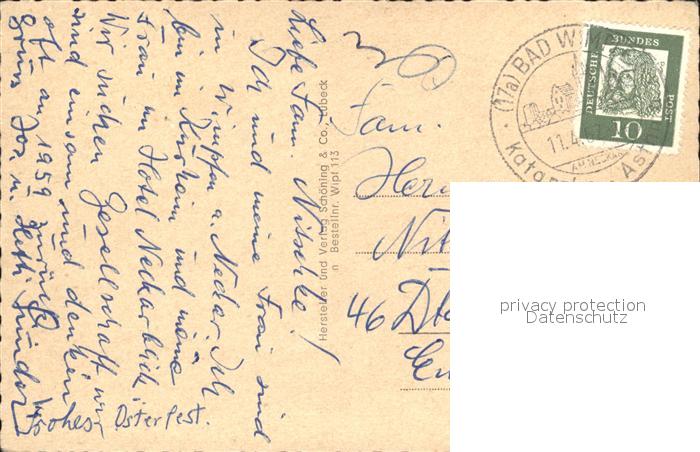 Liebe Fam. Nitschke!
Ich und meine Frau sind
in Wimpfen a. Neckar. Ich
bin im Kurheim und meine
Frau im Hotel Neckarblick.
Wir suchen Gesellschaft wir
sind einsam und denken
oft an 1959 zurück
Gruss Jos. u.
Frohes Osterfest.
Hersteller und Verlag Schöning & Co., Lübeck
Bestellnr. Wipf 113
Fam.
Her
Nit
46
(17a) BAD WIM
11.4.
Kata
As
DEUTSCHE BUNDESPOST
10
privacy protection
Datenschutz